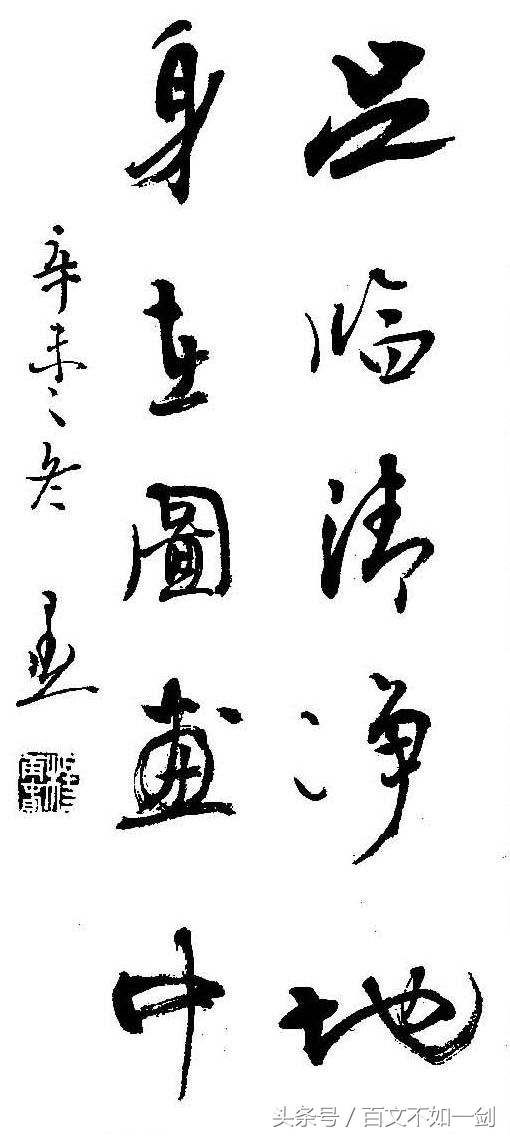 足临清净地
身在圖畫中
辛未之冬
头条号 / 百文不如一剑